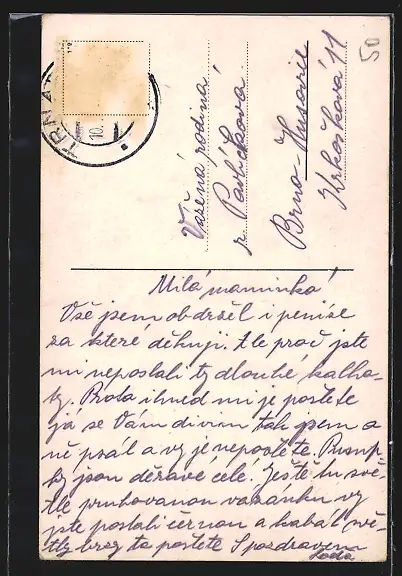 50
TRNAT
10.
Vážená rodina
Pavlíčková
Brno-Husovic
11
Milá maminko!
Vše jsem obdržel i peníse
za které děkuji. Ale proč jste
mi neposlali ty dlouhé kalho-
ty. Proto ihned mi je pošlete
já se Vám divím tak jsem a
ně psál a vy je nepošlete.
ky jsou děravé celé. Ještě tu svě-
tle pruhovanou vazánku vy
jste poslali černou a kabát svě-
tlý brzy to pošlete S pozdravem